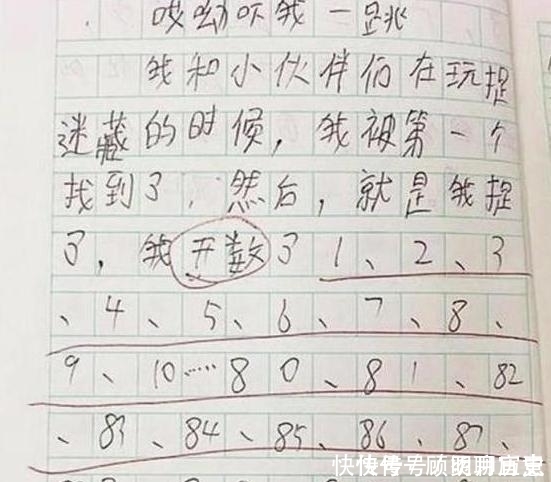 哎呦吓我一跳
我和小伙伴们在玩捉
迷藏的时候，我被第一个
找到了，然后，就是我捉
了，我开数了1、2、3
、4、5、6、7、8、
9、10……80、81、82
、83、84、85、86、87、